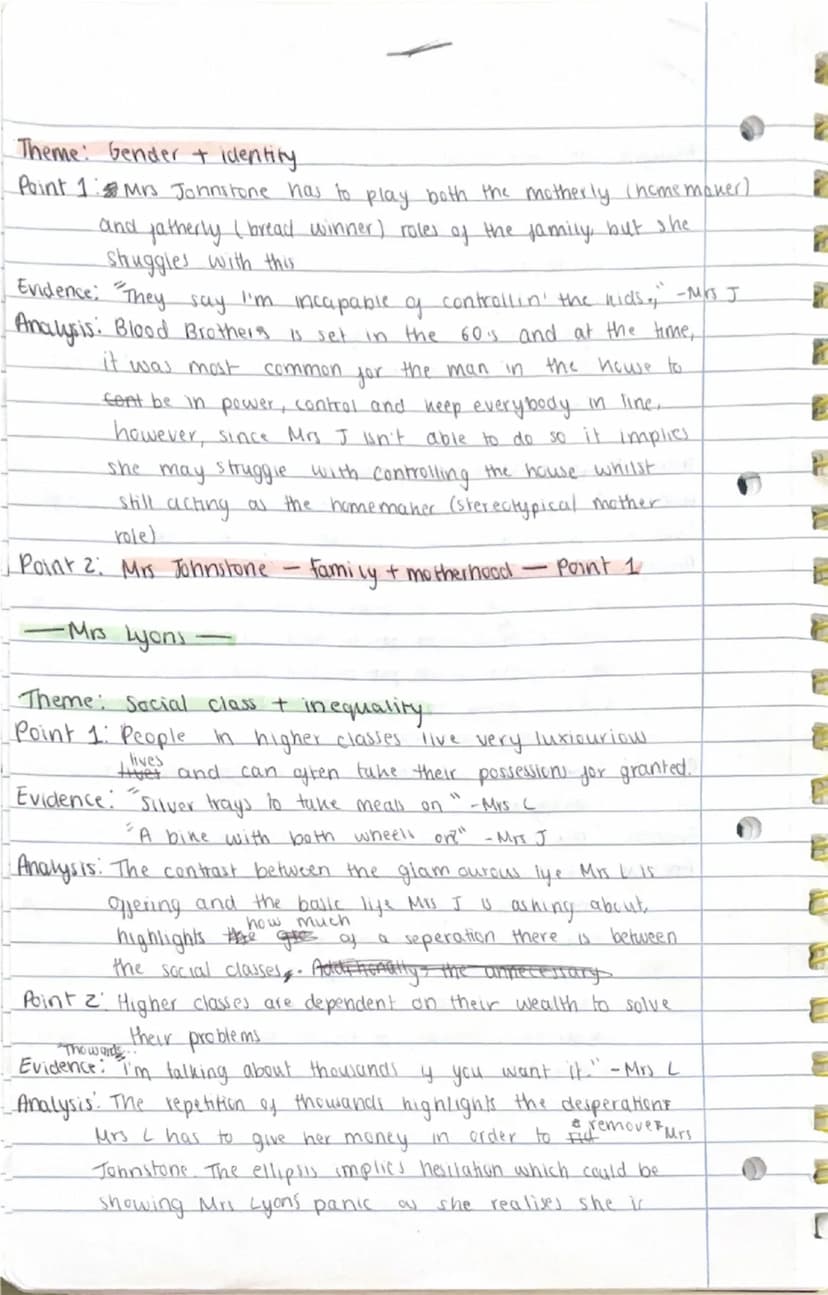 Theme: Gender + identity
Point 1: Mrs Johnstone has to play both the motherly (homemaker)
and fatherly (bread winner) roles of the family, but she
struggles with this
Evidence: "They say I'm incapable of controllin' the kids," - Mrs J
Analysis: Blood Brothers is set in the 60s and at the time,
it was most common for the man in the house to
Cont be in power, control and keep everybody in line,
however, since Mrs J isn't able to do so it implies
she may struggle with controlling the house whilst
still acting as the homemaker (stereotypical mother
role)
Point 2: Mrs Johnstone - Family + motherhood - Point 1
- Mrs Lyons -
Theme: Social class + inequality
Point 1: People in higher classes live very luxiouriow
lives
and can often take their possessions for granted.
Evidence: "Silver trays to take meals on" - Mrs L
"A bike with both wheels on?" - Mrs J
Analysis: The contrast between the glamourous life Mrs L is
offering and the basic life Mrs J is asking about,
how much
highlights the of a seperation there is between
the social classes. Additionally the unnecessary
Point 2: Higher classes are dependent on their wealth to solve
their problems
Evidence: "I'm talking about thousands if you want it." - Mrs L
Analysis: The repetition of thousands highlights the desperation
remove
Mrs L has to give her money in order to Mrs
Johnstone. The ellipsis implies hesitation which could be
showing Mrs Lyons panic as she realises she is